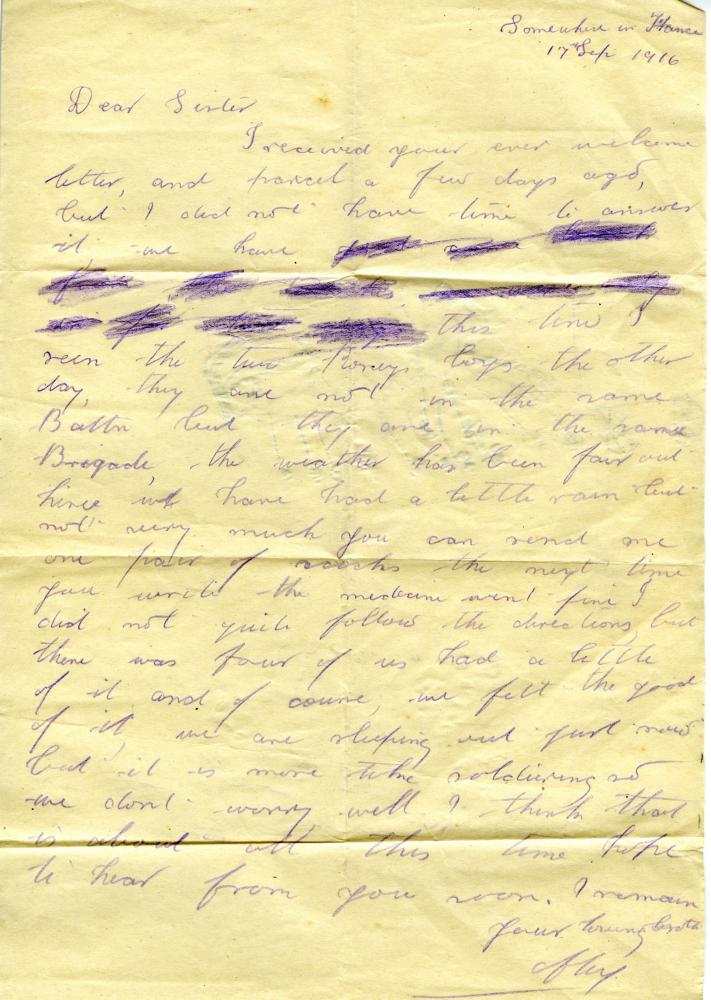 Somewhere in France
17th Sep 1916
Dear Sister
I received your ever welcome
letter, and parcel a few days ago,
but I did not have time to answer
it we have
this time I
seen the two boys the other
day, they are not in the same
Battn but they are in the same
Brigade, the weather has been fair out
hire we have had a little rain but
not very much you can send me
one pair of socks the next time
you write the medicine went fine I
did not quite follow the directions, but
there was four of us had a little
of it and of course, we felt the good
of it, we are sleeping out just now
but it is more like soldiering so
we dont worry well I think that
is about all this time hope
to hear from you soon. I remain
your loving broth